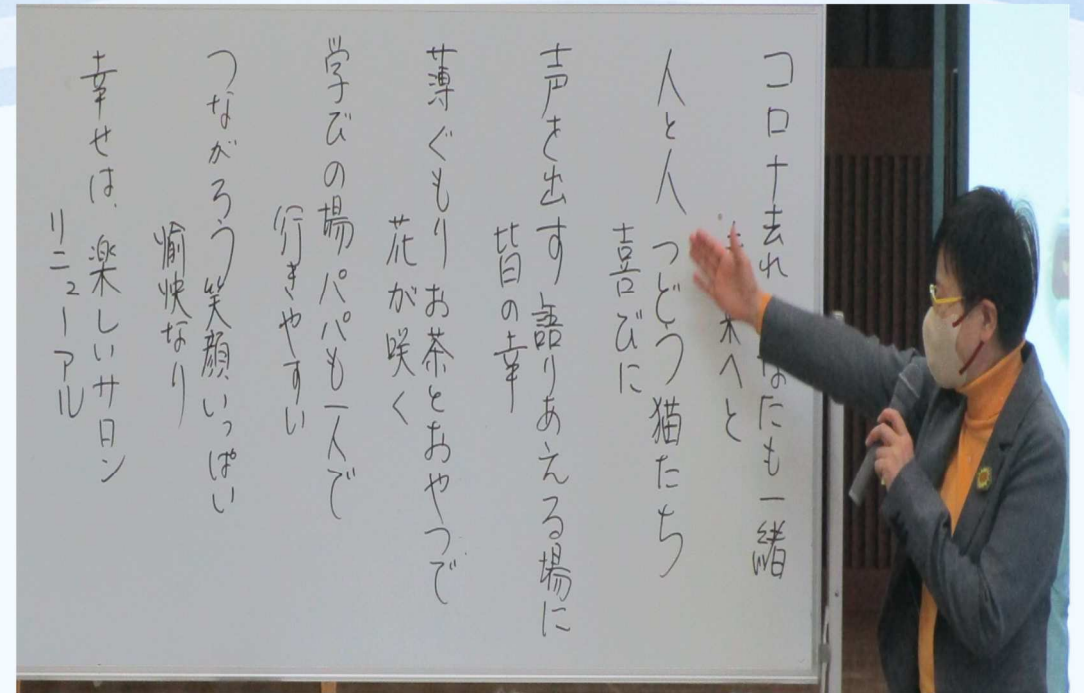 コロナ去れ なたも一緒
木へと
人と人 つどう猫たち
喜びに
声を出す語りあえる場に
皆の幸
薄ぐもりお茶とおやつで
花が咲く
学びの場パパも一人で
行きやすい
つながろう笑顔いっぱい
愉快なり
幸せは、楽しいサロン
リニューアル